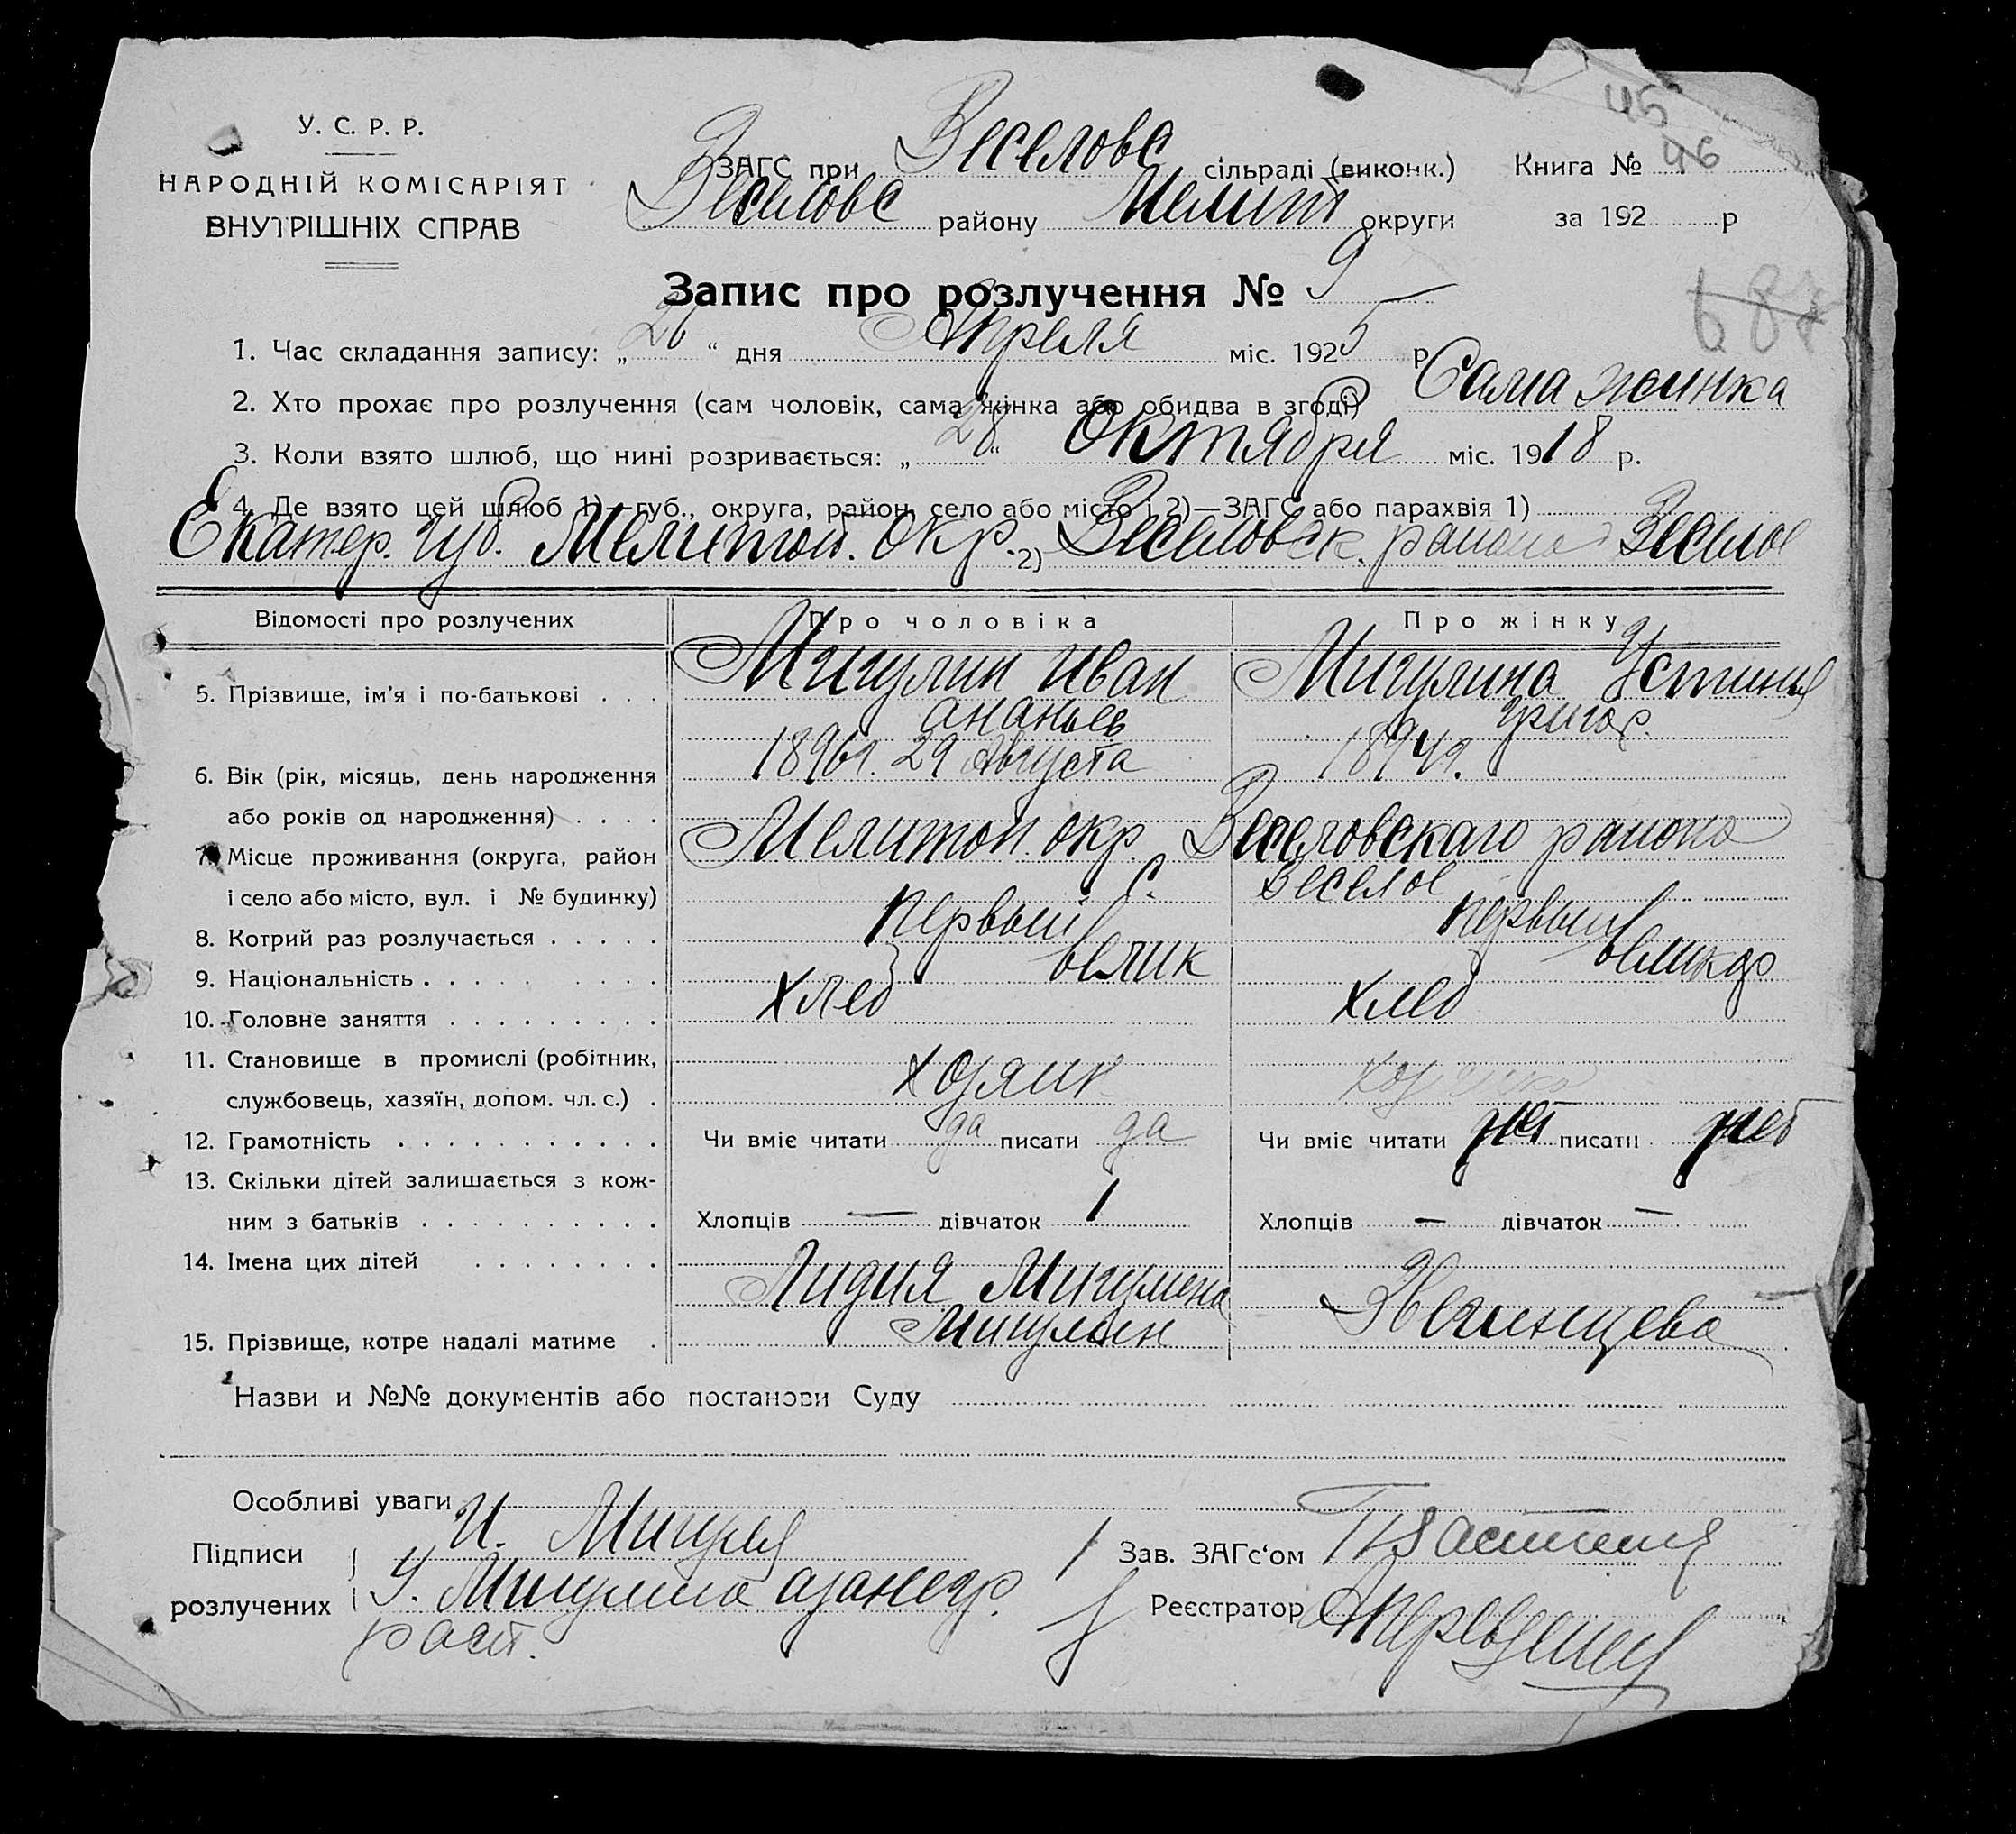 У. С. Р. Р.
НАРОДНІЙ КОМІСАРІЯТ
ВНУТРІШНІХ СПРАВ
ЗАГС при Веселовс сільраді (виконк.) Книга № 46
Веселовс району Мелит округи за 192 р
Запис про розлучення № 9
1. Час складання запису: „26“ дня Апреля міс. 1925 р
2. Хто прохає про розлучення (сам чоловік, сама жінка або обидва в згоді) Сама жинка
3. Коли взято шлюб, що нині розривається: „28“ Октября міс. 1918 р.
4. Де взято цей шлюб 1)—губ., округа, район, село або місто і 2)—ЗАГС або парахвія 1)
Екатер. губ. Мелитоп. окр. 2) Веселовск. района Веселое
Відомості про розлучених Про чоловіка Про жінку
5. Прізвище, ім'я і по-батькові . . . Мигулин Иван Мигулина Устинья
ананьев григор.
6. Вік (рік, місяць, день народження 1896г. 29 Августа 1894г.
або років од народження) . . . .
7. Місце проживання (округа, район Мелитоп. окр. Веселовскаго района
і село або місто, вул. і № будинку) с. Веселое
8. Котрий раз розлучається . . . . . первый первый
9. Національність . . . . . . . . велик великор
10. Головне заняття . . . . . . . . . хлеб хлеб
11. Становище в промислі (робітник,
службовець, хазяїн, допом. чл. с.) . хозяин
12. Грамотність . . . . . . . . . . . Чи вміє читати да писати да Чи вміє читати нет писати нет
13. Скільки дітей залишається з кож-
ним з батьків . . . . . . . . . . Хлопців — дівчаток 1 Хлопців — дівчаток —
14. Імена цих дітей . . . . . . . .
Лидия Мигулина
15. Прізвище, котре надалі матиме . Мигулин
Назви и №№ документів або постанови Суду
Особливі уваги
Підписи И. Мигул Зав. ЗАГс‘ом
розлучених У. Мигулина Реєстратор